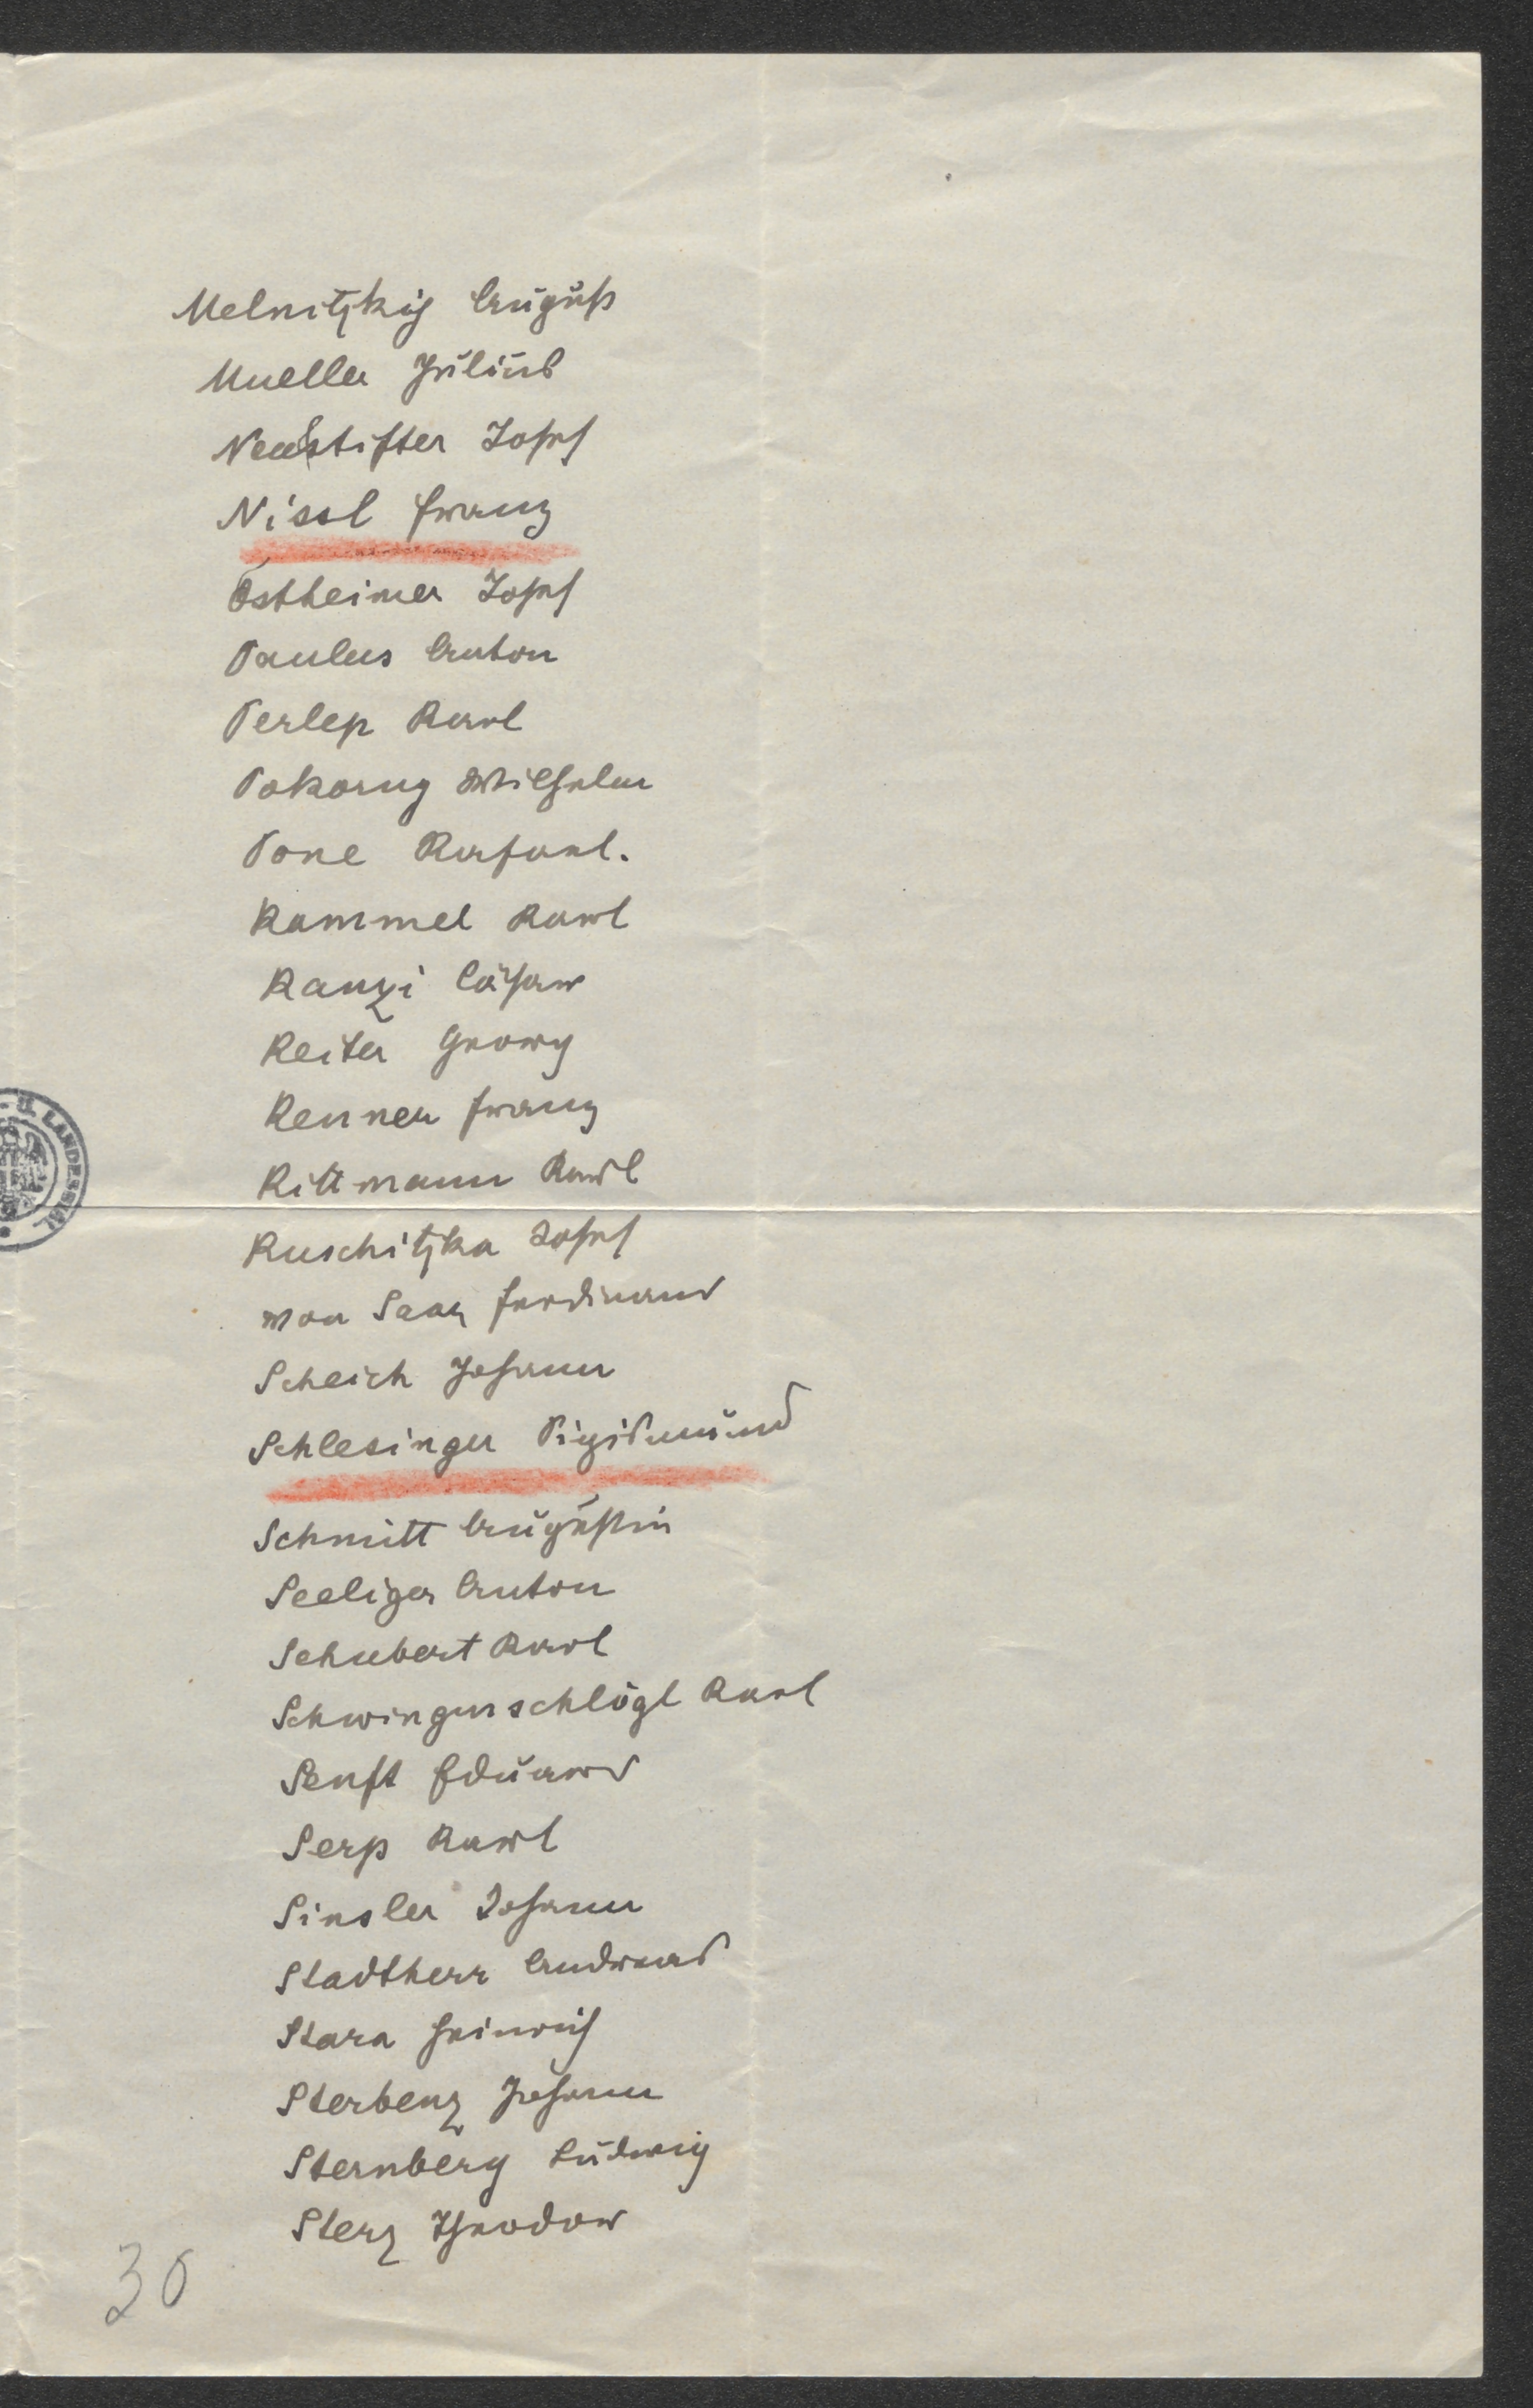 Melnitzkij August
Mueller Julius
Neustifter Josef
Nissl Franz
Ostheimer Josef
Paulus Anton
Perlep Karl
Pokorny Wilhelm
Pone Rafael.
Rammel Karl
Ranzi Cäsar
Reiter Georg
Renner Franz
Rittmann Karl
Ruschitzka Josef
von Saar Ferdinand
Scheich Johann
Schlesinger Sigismund
Schmitt Augustin
Seeliger Anton
Schubert Karl
Schwingenschlögl Karl
Senft Eduard
Serp Karl
Sinsler Johann
Stadtherr Andreas
Stara Heinrich
Sterbenz Johann
Sternberg Ludwig
Sterz Theodor
30